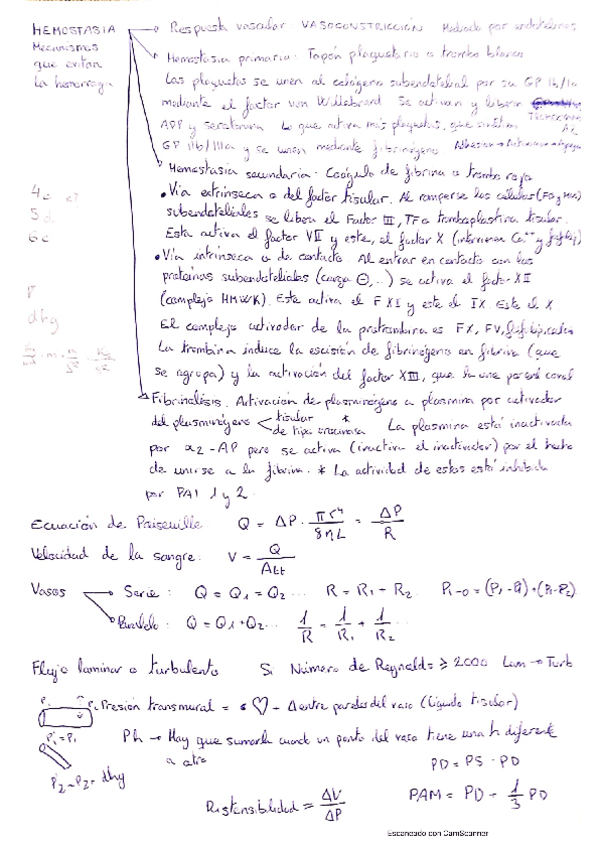 HEMOSTASIA → Respuesta vascular VASOCONSTRICCIÓN Mediado por endotelinas
Mecanismos
que evitan
la hemorragia
→ Hemostasia primaria. Tapón plaquetario o trombo blanco
Las plaquetas se unen al colágeno subendotelial por su GP Ib/Ia
mediante el factor von Willebrand Se activan y liberan Tromboxano A2
ADP y serotonina Lo que activa más plaquetas, que
GP IIb/IIIa y se unen mediante fibrinógeno Adhesión → Activación → Agreg
→ Hemostasia secundaria. Coágulo de fibrina o trombo rojo
• Vía extrínseca o del factor tisular. Al romperse las células
subendoteliales se libera el Factor III, TF o tromboplastina tisular.
Esta activa el factor VII y este, el factor X (intervienen Ca++ y fosflip)
• Vía intrínseca o de contacto Al entrar en contacto con las
proteínas subendoteliales (carga ⊖,..) se activa el factor XII
(complejo HMWK). Este activa el F XI y este el IX Este el X
El complejo activador de la protrombina es FX, FV, fosfolípidos
La trombina induce la escisión de fibrinógeno en fibrina (que
se agrupa) y la activación del factor XIII, que la une por enl coval
→ Fibrinólisis. Activación de plasminógeno a plasmina por activador
del plasminógeno < tisular *
de tipo uroquinasa La plasmina está inactivada
por α2-AP pero se activa (inactiva el inactivador) por el hecho
de unirse a la fibrina. * La actividad de estos está inhibida
por PAI 1 y 2
4c
5d
6c
dhg
Ecuación de Poiseuille Q = ΔP · πr⁴/8ηL = ΔP/R
Velocidad de la sangre: V = Q/Att
Vasos → Serie: Q = Q1 = Q2 ... R = R1 + R2 P1-0 = (P1-P)+(P1-P2)
→ Paralelo: Q = Q1 + Q2 ... 1/R = 1/R1 + 1/R2 ...
Flujo laminar o turbulento Si Número de Reynolds ⩾ 2000 Lam → Turb
Presión transmural = ♡ - Δ entre paredes del vaso (líquido tisular)
P1 = P2
Ph → Hay que sumarla cuando un punto del vaso tiene una h diferente
a otro
P2 - P2 = dhg
PD = PS - PD
Distensibilidad = ΔV/ΔP PAM = PD + 1/3 PD
Escaneado con CamScanner